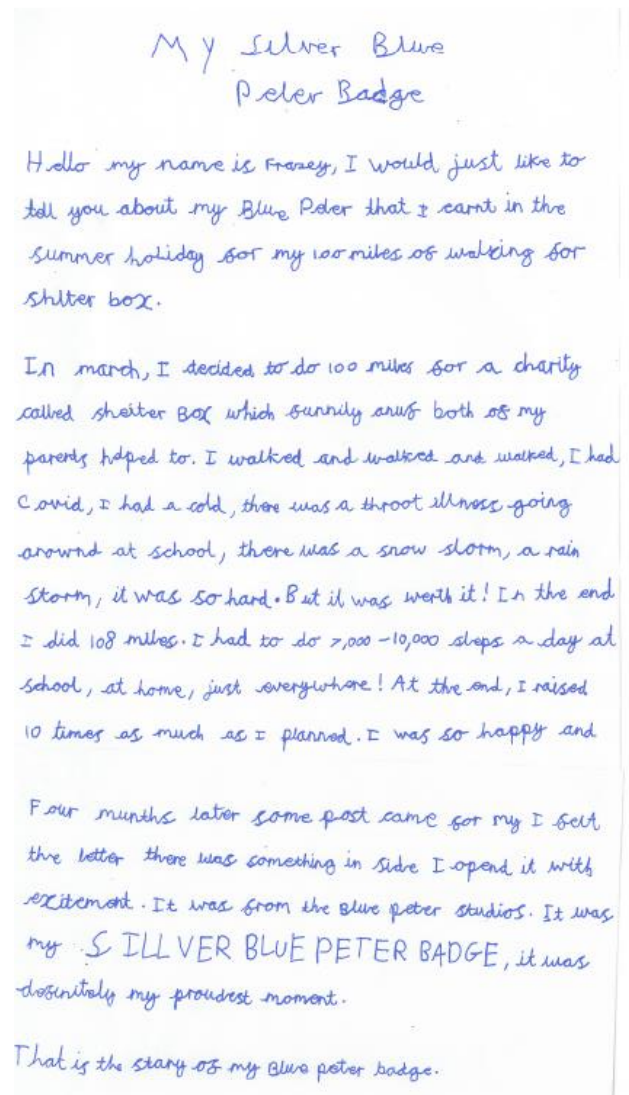 My Silver Blue
Peter Badge
Hello my name is Frazey, I would just like to
tell you about my Blue Peter that I earnt in the
summer holiday for my 100 miles of walking for
shlter box.
In march, I decided to do 100 miles for a charity
called shelter Box which funnily enuf both of my
parents helped to. I walked and walked and walked, I had
Covid, I had a cold, there was a throot illness going
arownd at school, there was a snow storm, a rain
storm, it was so hard. But it was werth it! In the end
I did 108 miles. I had to do 7,000 - 10,000 steps a day at
school, at home, just everywhere! At the end, I raised
10 times as much as I planned. I was so happy and
Four munths later some post came for my I felt
the letter there was something in side I opend it with
excitement. It was from the Blue peter studios. It was
my SILLVER BLUE PETER BADGE, it was
definitely my proudest moment.
That is the stary of my Blue peter badge.